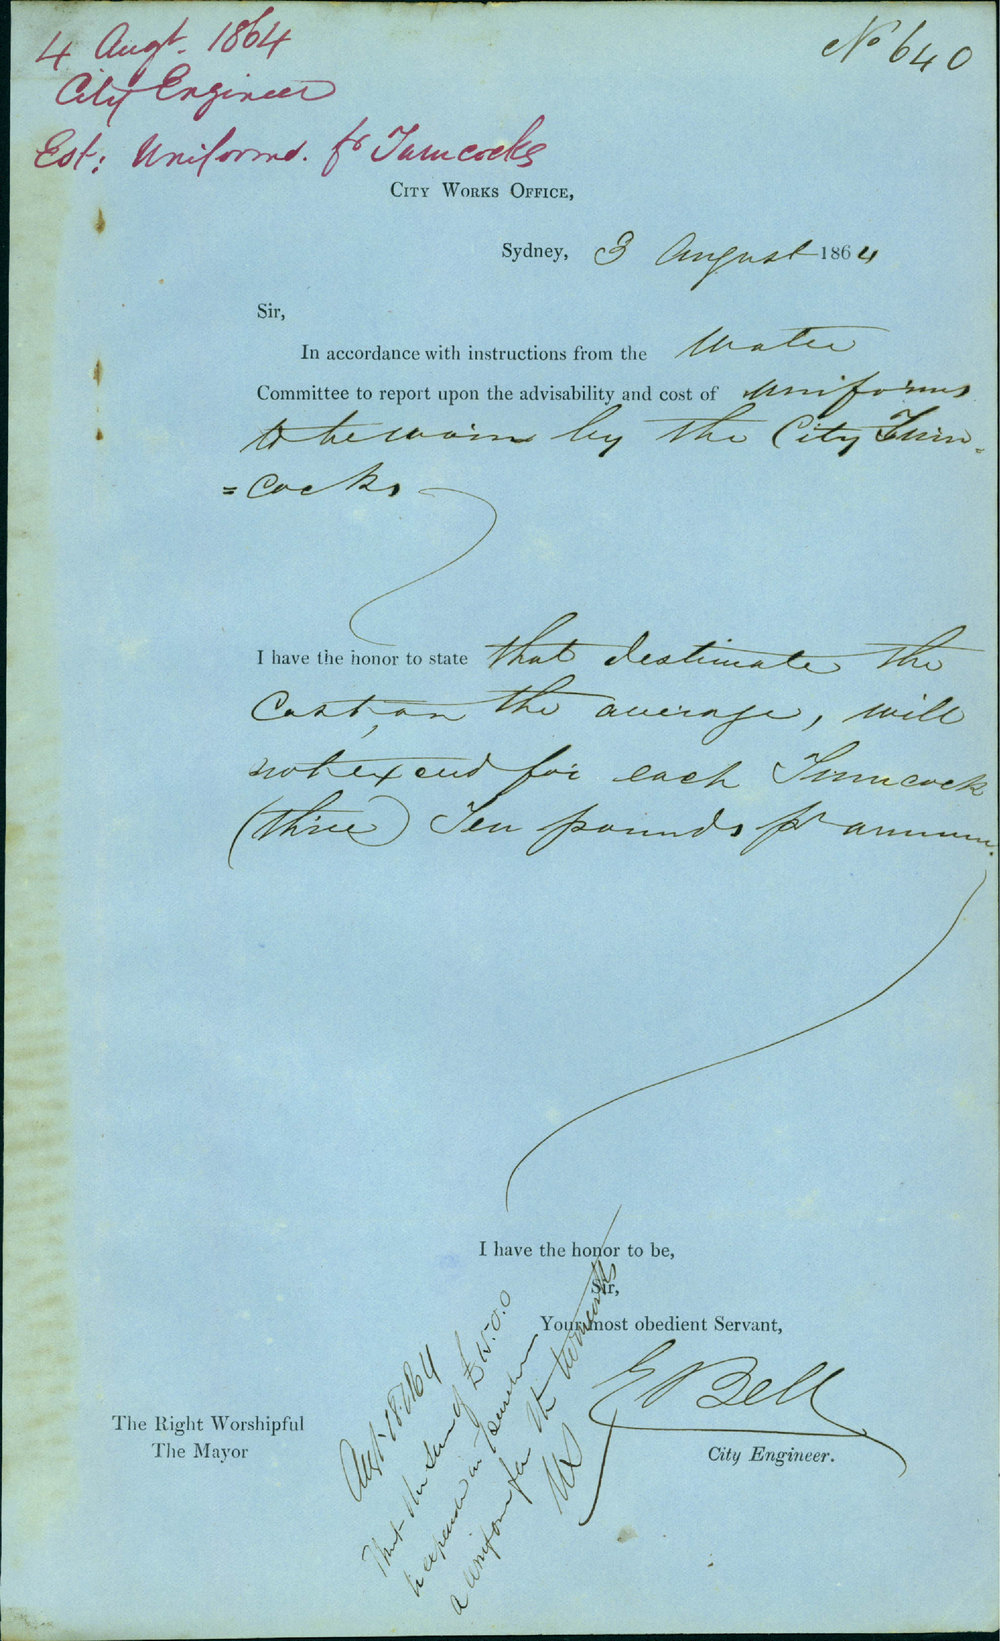 4 Augt. 1864
No 640
City Engineer
Est: Uniforms. fr Turncocks
CITY WORKS OFFICE,
Sydney, 3 August 1864
Sir,
In accordance with instructions from the Water
Committee to report upon the advisability and cost of uniforms
to be worn by the City Turn=
=cocks
I have the honor to state that I estimate the
cost, on the average, will
not exceed for each Turncock
(three) Ten pounds pr annum.
I have the honor to be,
Sir,
Your most obedient Servant,
E Bell
City Engineer.
The Right Worshipful
The Mayor
Augt 18. 1864
That the Sum of £15.0.0
be expended in purchasing
a uniform for the turncocks